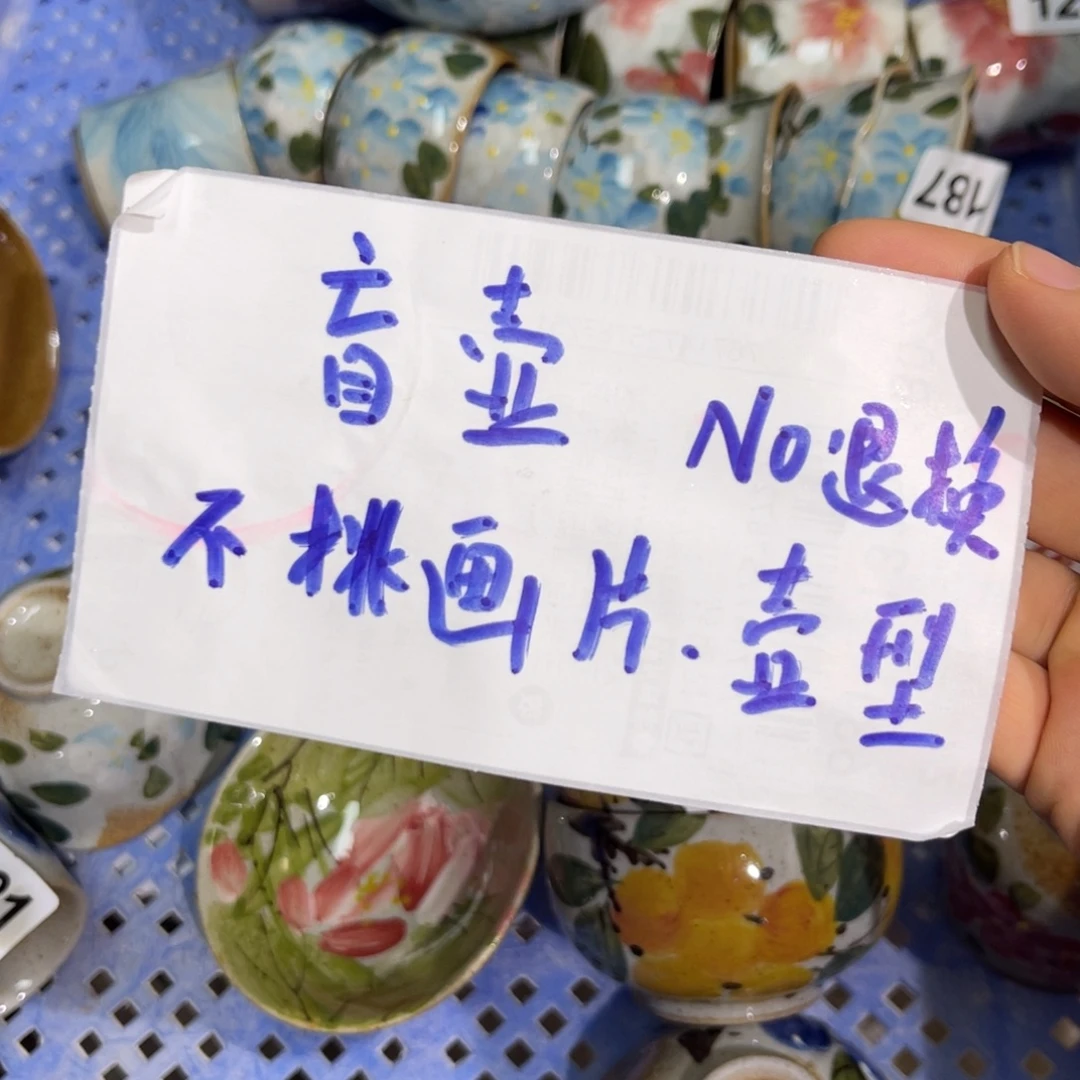 盲壶
No退换
不挑画片.壶型
187